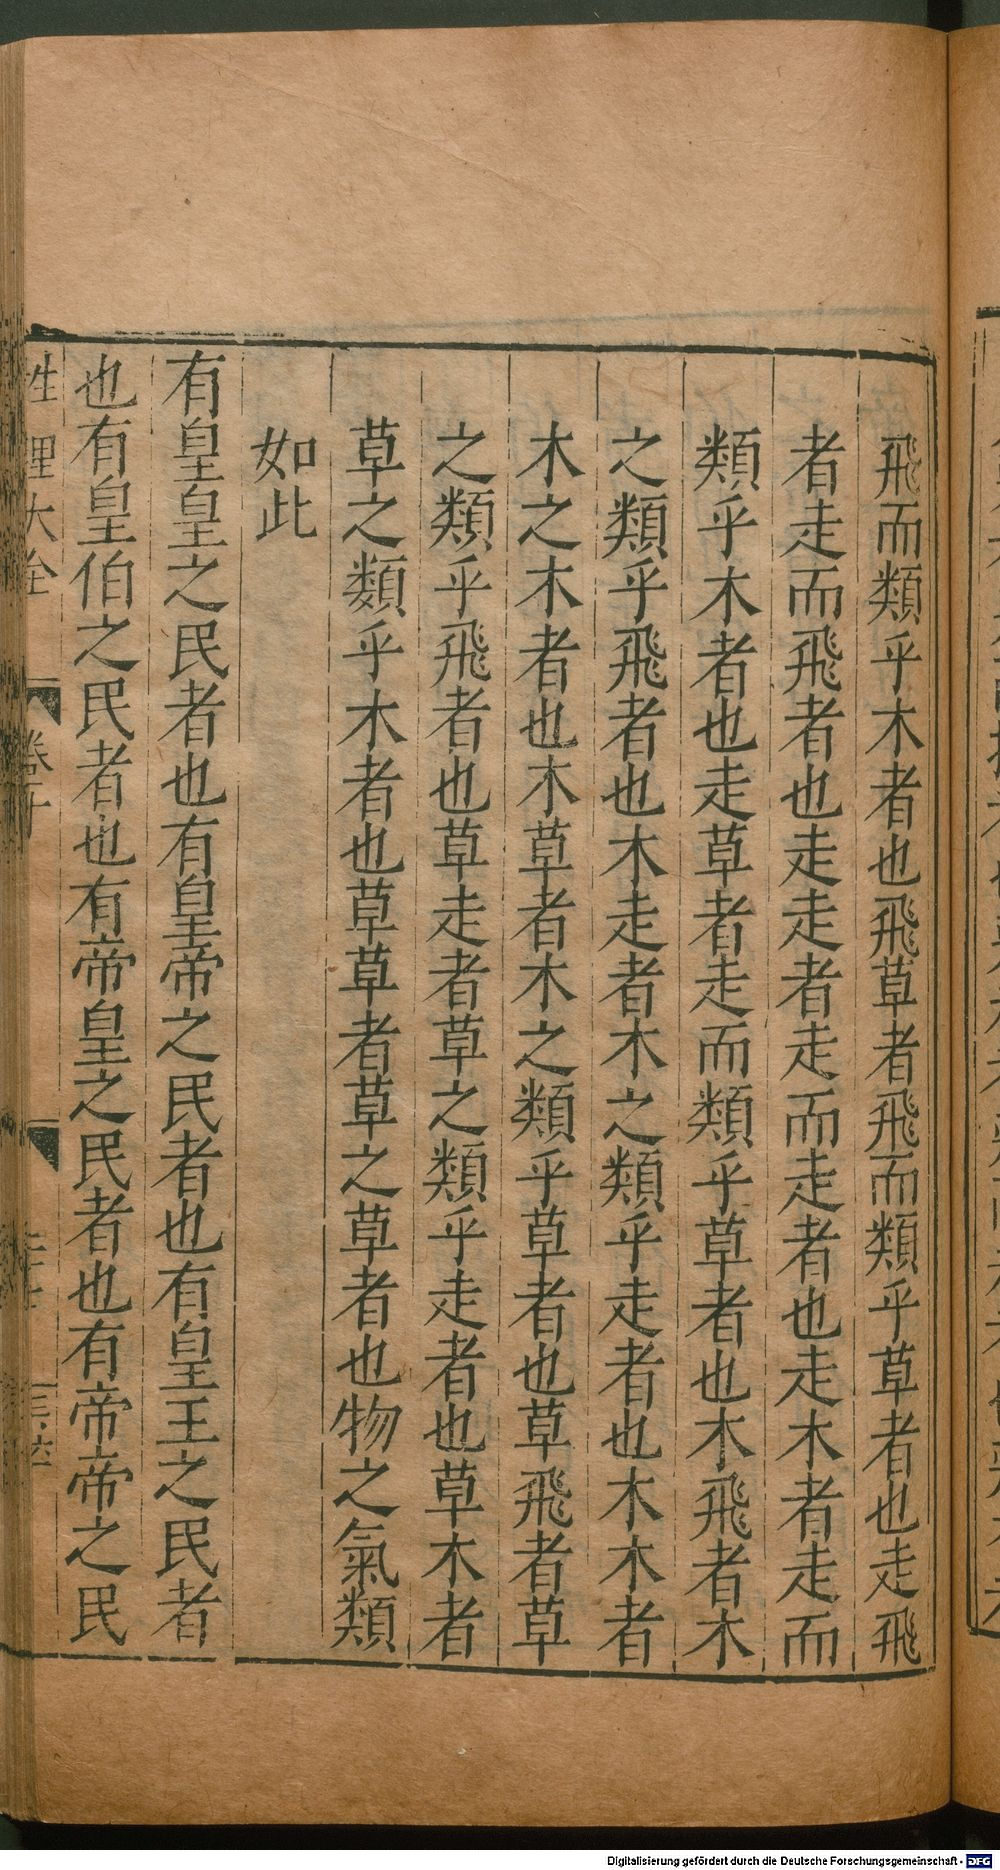 飛而類乎木者也飛草者飛而類乎草者也走飛
者走而飛者也走走者走而走者也走木者走而
類乎木者也走草者走而類乎草者也木飛者木
之類乎飛者也木走者木之類乎走者也木木者
木之木者也木草者木之類乎草者也草飛者草
之類乎飛者也草走者草之類乎走者也草木者
草之類乎木者也草草者草之草者也物之氣類
如此
有皇皇之民者也有皇帝之民者也有皇王之民者
也有皇伯之民者也有帝皇之民者也有帝帝之民
性理大全
卷十
Digitalisierung gefördert durch die Deutsche Forschungsgemeinschaft - DFG